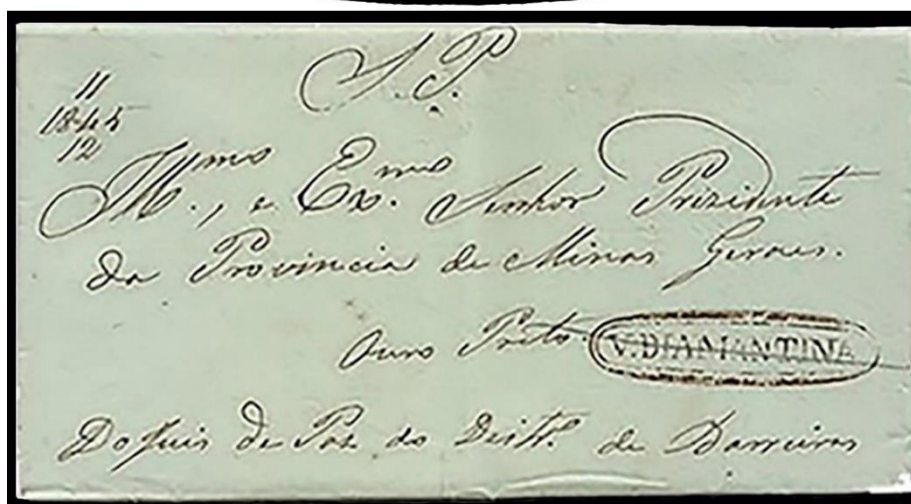 S. P.
11
1845
12
Illmo., e Exmo. Senhor Prizidente
da Provincia de Minas Geraes.
Ouro Preto.
V. DIAMANTINA
Do Juis de Paz do Distr.o de Barreiras